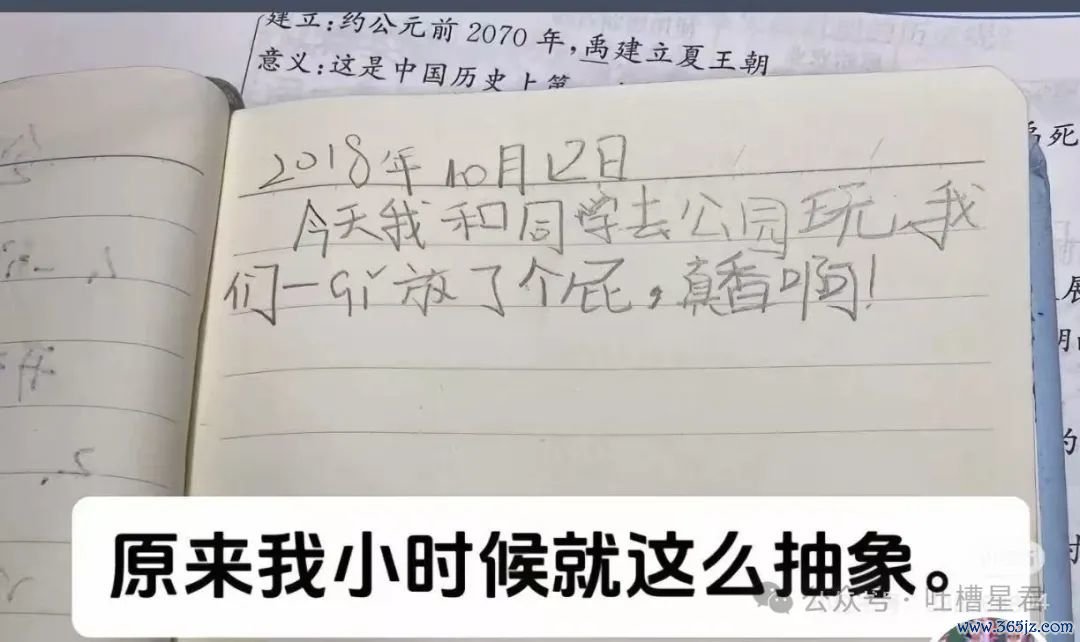 建立:约公元前 2070 年,禹建立夏王朝
意义:这是中国历史上第
死
2018年10月12日
今天我和同学去公园玩,我
们一qǐ放了个屁,真香啊!
展
为
原来我小时候就这么抽象。
公众号·吐槽星君
www.365jz.com